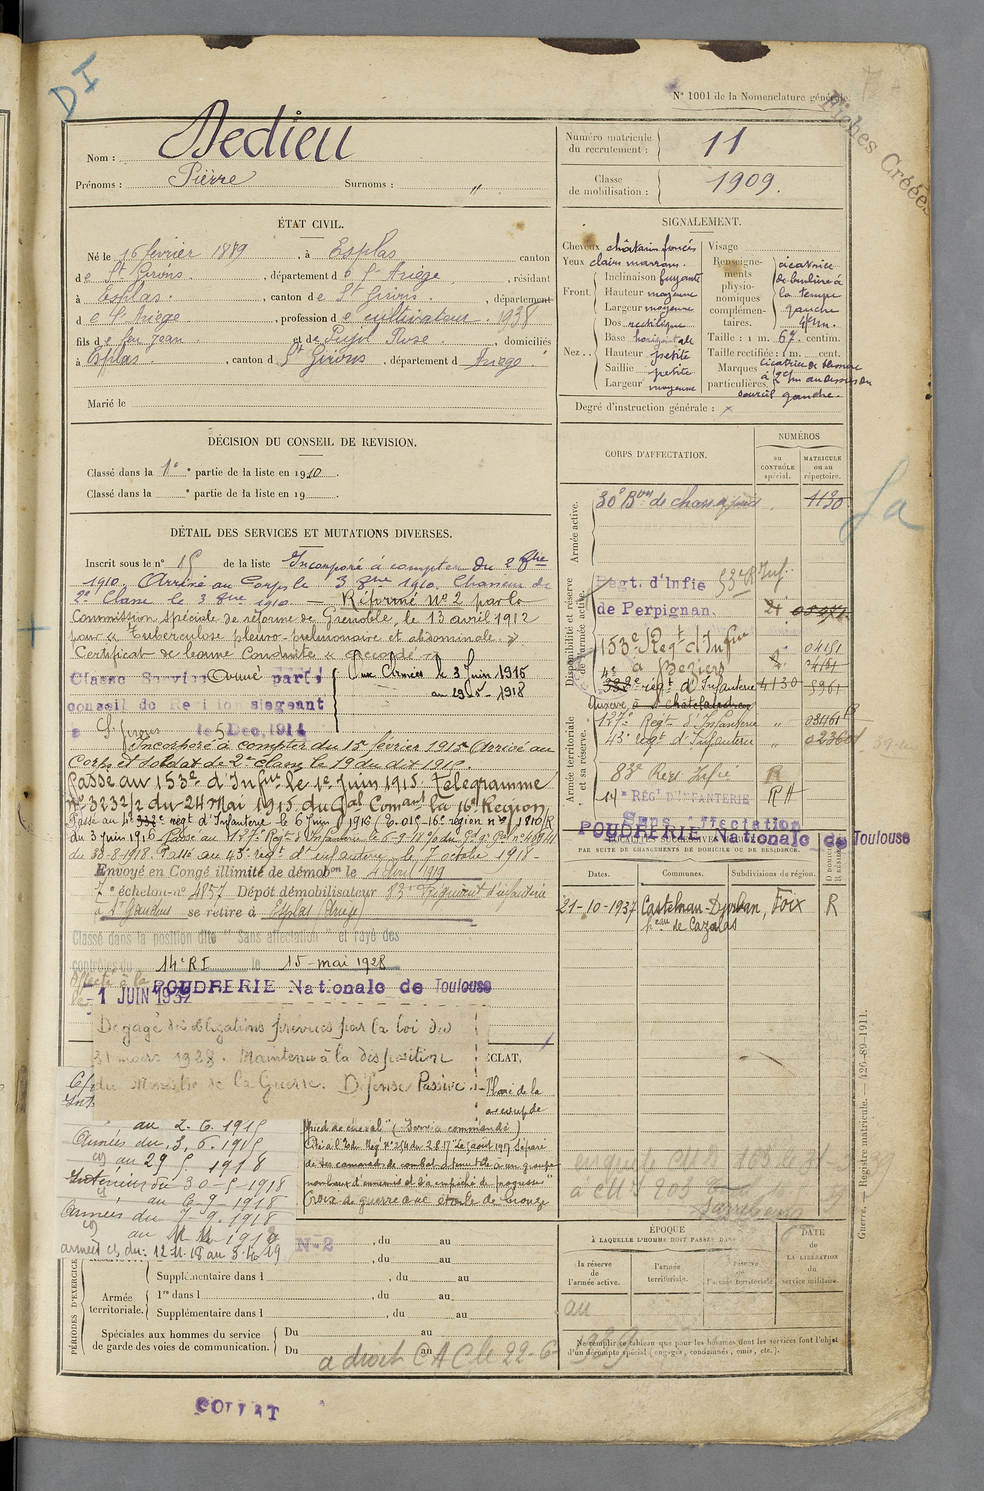 DI
N° 1001 de la Nomenclature générale.
Fiches Créées
Nom : Dedieu
Prénoms : Pierre Surnoms : "
Numéro matricule du recrutement : 11
Classe de mobilisation : 1909.
ÉTAT CIVIL.
Né le 16 février 1889, à Esplas canton
de St Girons, département de l'Ariège, résidant
à Esplas, canton de St Girons, département
de l'Ariège, profession de cultivateur. 1938
fils de feu Jean et de Pujol Rose, domiciliés
à Esplas, canton d St Girons, département d Ariège.
Marié le
SIGNALEMENT.
Cheveux châtain foncés
Yeux clairs marrons.
Front. Inclinaison fuyante
Hauteur moyenne
Largeur moyenne
Nez. Dos rectiligne
Base horizontale
Hauteur petite
Saillie petite
Largeur moyenne
Visage
Renseignements physionomiques complémentaires. cicatrice de brulure à la tempe gauche
Taille : 1 m. 67 centim.
Taille rectifiée : 1 m. cent.
Marques particulières. cicatrice de blessure à 2 cm au dessus du sourcil gauche.
Degré d'instruction générale : x
DÉCISION DU CONSEIL DE REVISION.
Classé dans la 1e partie de la liste en 1910.
Classé dans la e partie de la liste en 19
DÉTAIL DES SERVICES ET MUTATIONS DIVERSES.
Inscrit sous le n° 15 de la liste Incorporé à compter du 2 8bre
1910. Arrivé au Corps le 3 8bre 1910. Chasseur de
2e Classe le 3 8bre 1910 — Réformé N° 2 par la
Commission spéciale de réforme de Grenoble, le 13 avril 1912
pour « Tuberculose pleuro-pulmonaire et abdominale. »
Certificat de bonne Conduite « accordé »
Classé Service Armé par le
conseil de Revision siégeant
à St Girons le 5 Dec. 1914
Aux Armées le 3 Juin 1915
au 29-5-1918
Incorporé à compter du 15 février 1915. Arrivé au
Corps et soldat de 2e classe le 19 du dit 1915.
Passé au 153e d'Infie le 1er Juin 1915. Télégramme
N° 3232/2 du 24 Mai 1915 du Gal Comant la 16e Région,
Passé au 4e régt d'Infanterie le 6 juin 1916
du 3 juin 1916. Passé au 127e Régt d'Infanterie le 6-9-18
du 30-8-1918. Passé au 43e régt d'infanterie le 7 octobre 1918-
Envoyé en Congé illimité de démobon le 4 avril 1919
7e échelon-n° 4857 Dépôt démobilisateur 83e Régiment d'infanterie
à St Gaudens se retire à Esplas (Ariège)
Classé dans la position dite "Sans affectation" et rayé des
contrôles du 14e RI le 15-mai 1928
Affecté à la POUDRERIE Nationale de Toulouse
le -1 JUIN 1932
Dégagé des obligations prévues par la loi du
31 mars 1928. Maintenu à la disposition
du Ministre de la Guerre. Défense Passive.
au 2.6.1915
Armées du 3.6.1915
au 29 5. 1918
Intérieur du 30-5-1918
au 6-9-1918
Armées du 7-9-1918
au 11 11 1918
armées du : 12.11.18 au 3.4.19
ÉCLAT,
pied de cheval" (
Cité à l'Ordre
Croix de guerre avec étoile de bronze
CORPS D'AFFECTATION.
NUMÉROS
DU CONTRÔLE spécial.
MATRICULE ou au répertoire.
Armée active.
30e Bon de chass. à pied 1130
Disponibilité et réserve de l'armée active.
Régt. d'Infie de Perpignan. 53e R Inf.
153e Régt d'Infie à Béziers 04151
4e régt d'Infanterie 4130
Auxerre
Armée territoriale et sa réserve.
127e Régt d'Infanterie "
43e régt d'Infanterie "
83e Regt Infie R
14e RÉGT D'INFANTERIE RA
Sans Affectation
POUDRERIE Nationale de Toulouse
LOCALITÉS SUCCESSIVES HABITÉES
PAR SUITE DE CHANGEMENTS DE DOMICILE OU DE RÉSIDENCE.
Dates. Communes. Subdivisions de région.
21-10-1937 Castelnau-Durban, Foix R
heau de Cazalas
PÉRIODES D'EXERCICES
N-2
, du au
, du au
Supplémentaire dans l , du au
Armée territoriale. 1re dans l , du au
Supplémentaire dans l , du au
Spéciales aux hommes du service de garde des voies de communication. Du au
Du au
a droit CAC le 22-6- 939
ÉPOQUE
À LAQUELLE L'HOMME DOIT PASSER DANS
la réserve de l'armée active.
l'armée territoriale.
la réserve de l'armée territoriale.
DATE de LA LIBÉRATION du service militaire.
Ne remplir ce tableau que pour les hommes dont les services font l'objet d'un décompte spécial (engagés, condamnés, omis, etc.).
Guerre. — Registre matricule. — 426-89-1911.